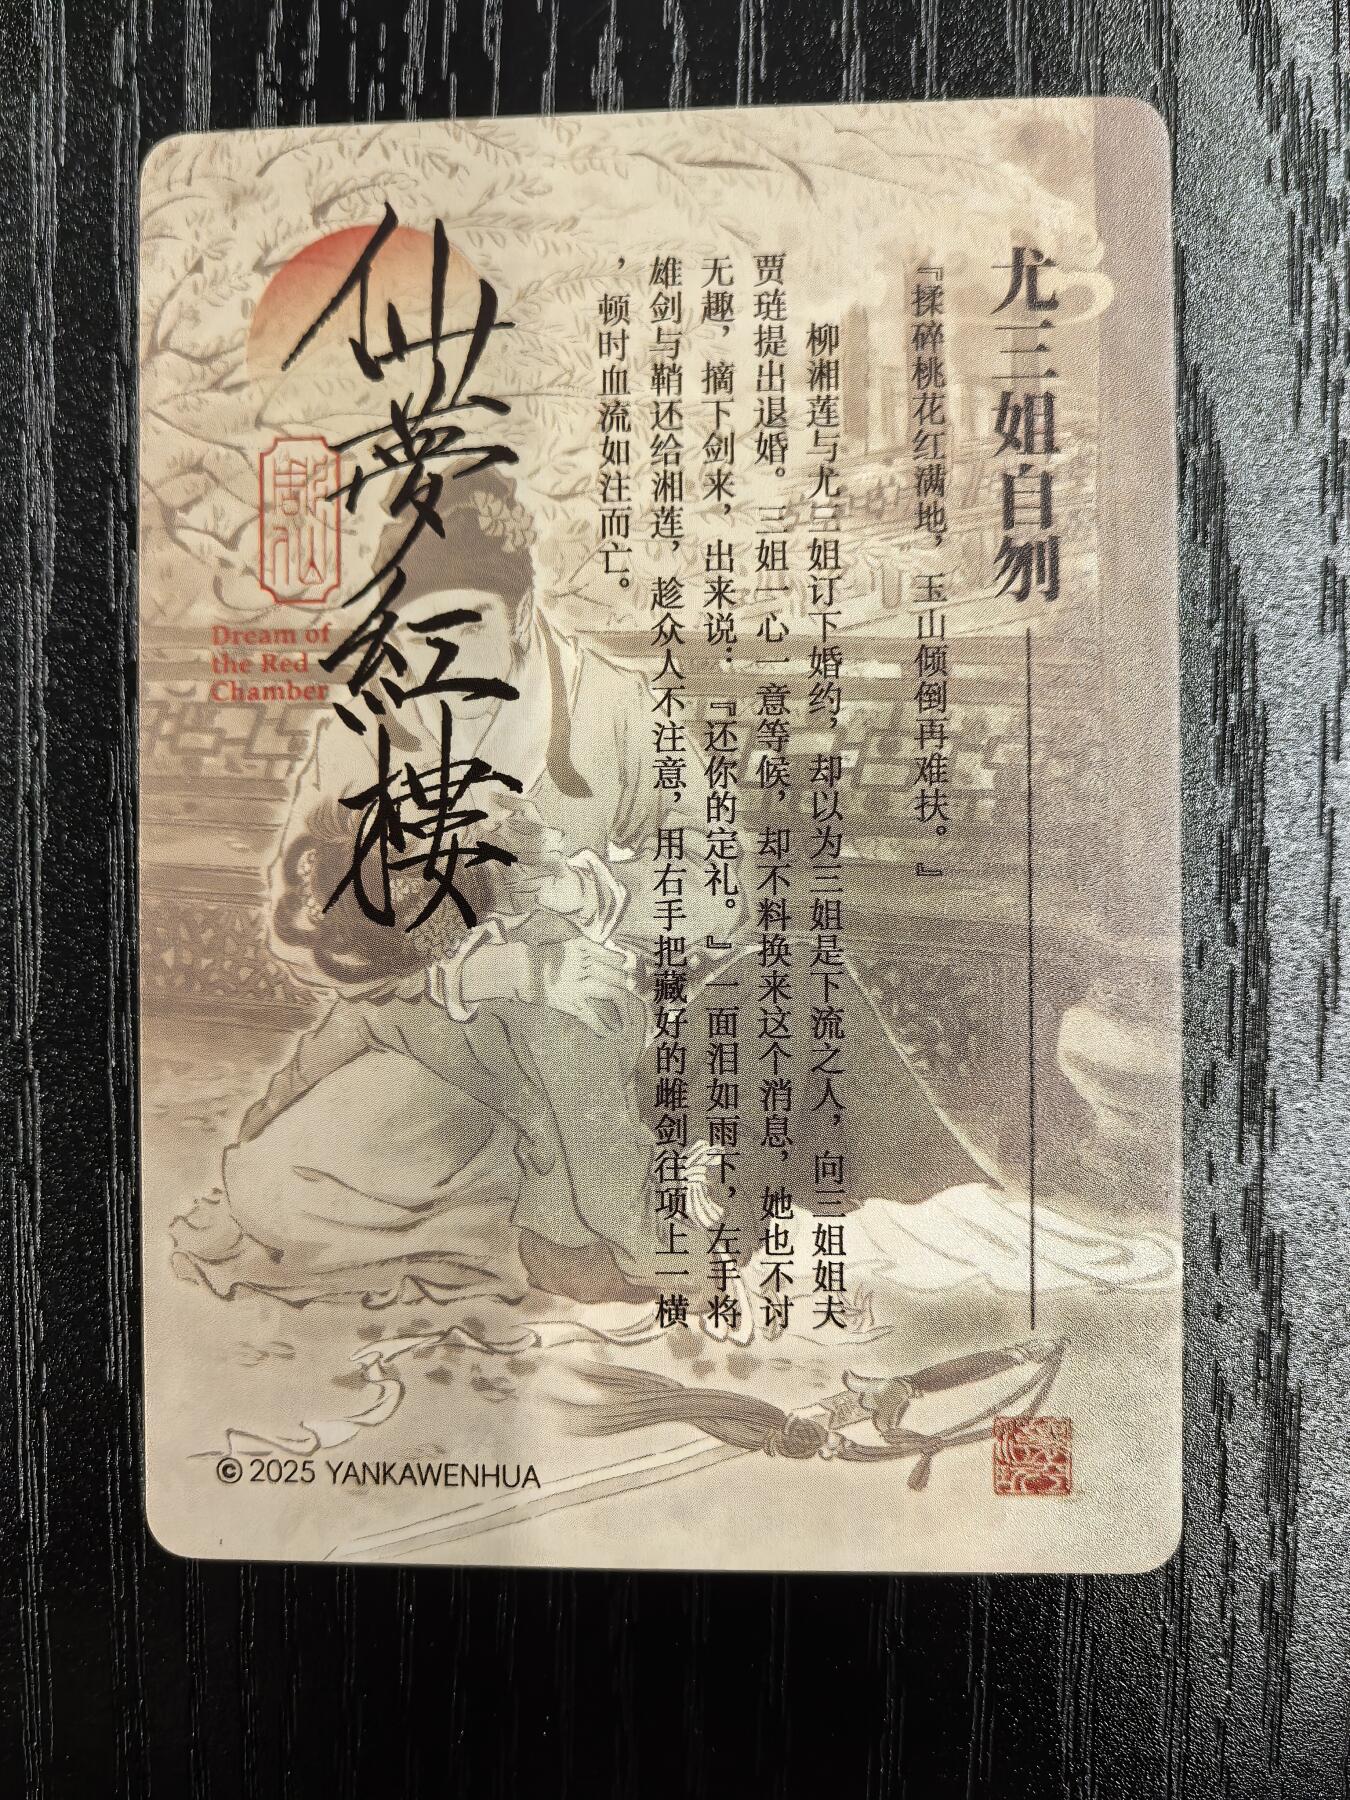 尤三姐自刎
『揉碎桃花红满地，玉山倾倒再难扶。』
柳湘莲与尤三姐订下婚约，却以为三姐是下流之人，向三姐姐夫
贾琏提出退婚。三姐一心一意等候，却不料换来这个消息，她也不讨
无趣，摘下剑来，出来说：『还你的定礼。』一面泪如雨下，左手将
雄剑与鞘还给湘莲，趁众人不注意，用右手把藏好的雌剑往项上一横
，顿时血流如注而亡。
仙夢紅樓
Dream of
the Red
Chamber
© 2025 YANKAWENHUA